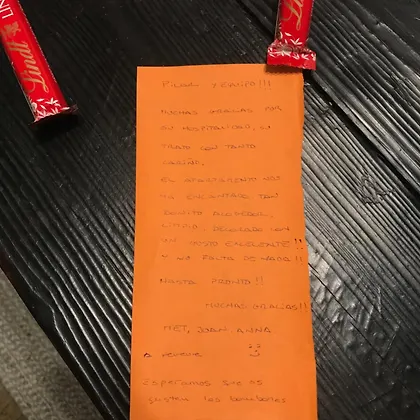 Lindt
LIN
Lindt
Y EQUIPO!!!
MUCHAS GRACIAS POR
SU HOSPITALIDAD, SU
TRATO CON TANTO
CARIÑO,
EL APARTAMENTO NOS
HA ENCANTADO TAN
BONITO, ACOGEDOR,
DECORADO CON
UN GUSTO EXCELENTE!!
Y NO FALTA DE NADA!!
HASTA PRONTO!!
MUCHAS GRACIAS!!
JOAN, ANNA
Esperamos que os
gusten los bombones